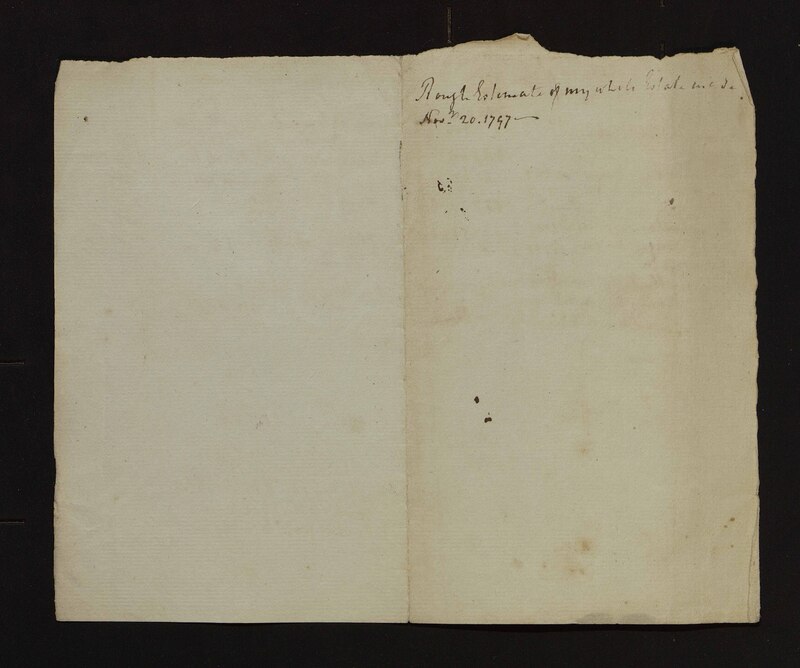 Rough Estimate of my whole Estate made
Novr. 20. 1797